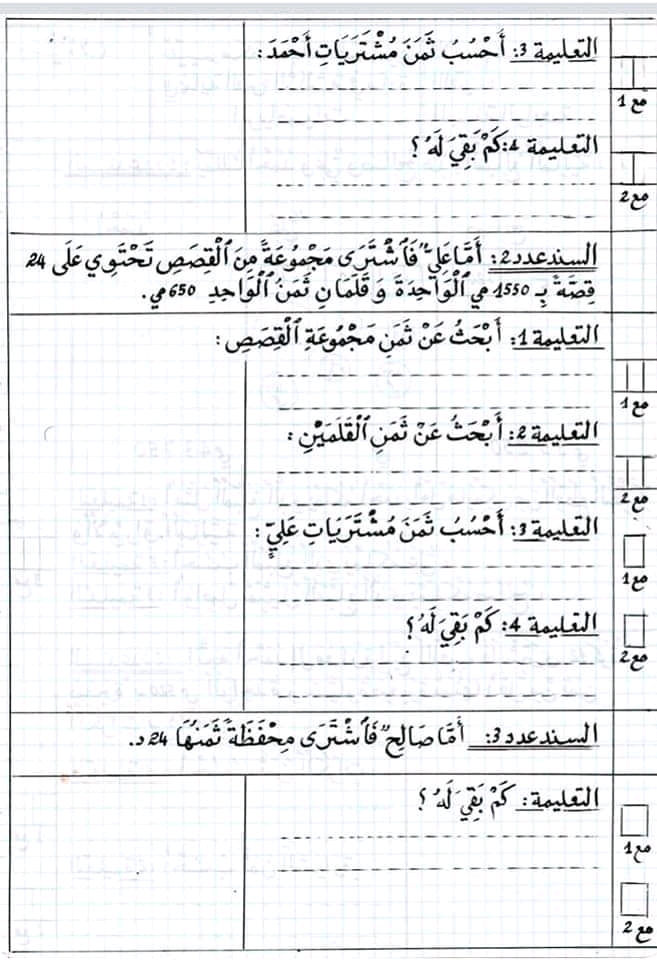 التعليمة 3: أَحْسُبُ ثَمَنَ مُشْتَرَيَاتِ أَحْمَدَ:
مع 1
التعليمة 4: كَمْ بَقِيَ لَهُ؟
مع 2
السند عدد 2: أَمَّا عَلِيٌّ فَٱشْتَرَى مَجْمُوعَةً مِنَ ٱلْقِصَصِ تَحْتَوِي عَلَى 24
قِصَّةً بِـ 1550 مي ٱلْوَاحِدَةَ وَ قَلَمَانِ ثَمَنُ ٱلْوَاحِدِ 650 مي.
التعليمة 1: أَبْحَثُ عَنْ ثَمَنِ مَجْمُوعَةِ ٱلْقِصَصِ:
مع 1
التعليمة 2: أَبْحَثُ عَنْ ثَمَنِ ٱلْقَلَمَيْنِ:
مع 2
التعليمة 3: أَحْسُبُ ثَمَنَ مُشْتَرَيَاتِ عَلِيٍّ:
مع 1
التعليمة 4: كَمْ بَقِيَ لَهُ؟
مع 2
السند عدد 3: أَمَّا صَالِحٌ فَٱشْتَرَى مِحْفَظَةً ثَمَنُهَا 24 د.
التعليمة: كَمْ بَقِيَ لَهُ؟
مع 1
مع 2